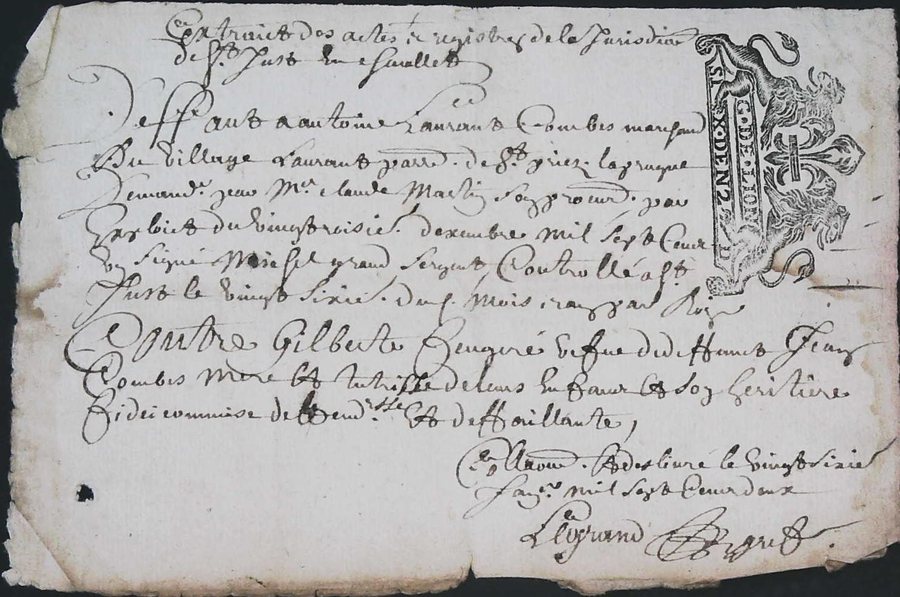 Extraict des actes & registres de la Jurisdion
de St Just en chevallet
Deffaut a antoine Laurant Combes marchand
Du village Laurant parr. de St priez laprugne
Demandr. par Mre claude Mactin son procur. par
Exploict du vingt troisie. decembre mil sept Cent
un signé Michel grand sergent Controllé a St
Just le vingt sixie. du d. mois par Roze
Contre Gilberte vefve de deffunct Jean
Combes mere et tutrisse de leurs enfans et son heritiere
fideicommise deffend.sse et deffaillante,
Collaon. et deslivré le vingt sixie
Janr. mil sept Cent deux
Legrand greff.
G. DE LION
SIX DEN